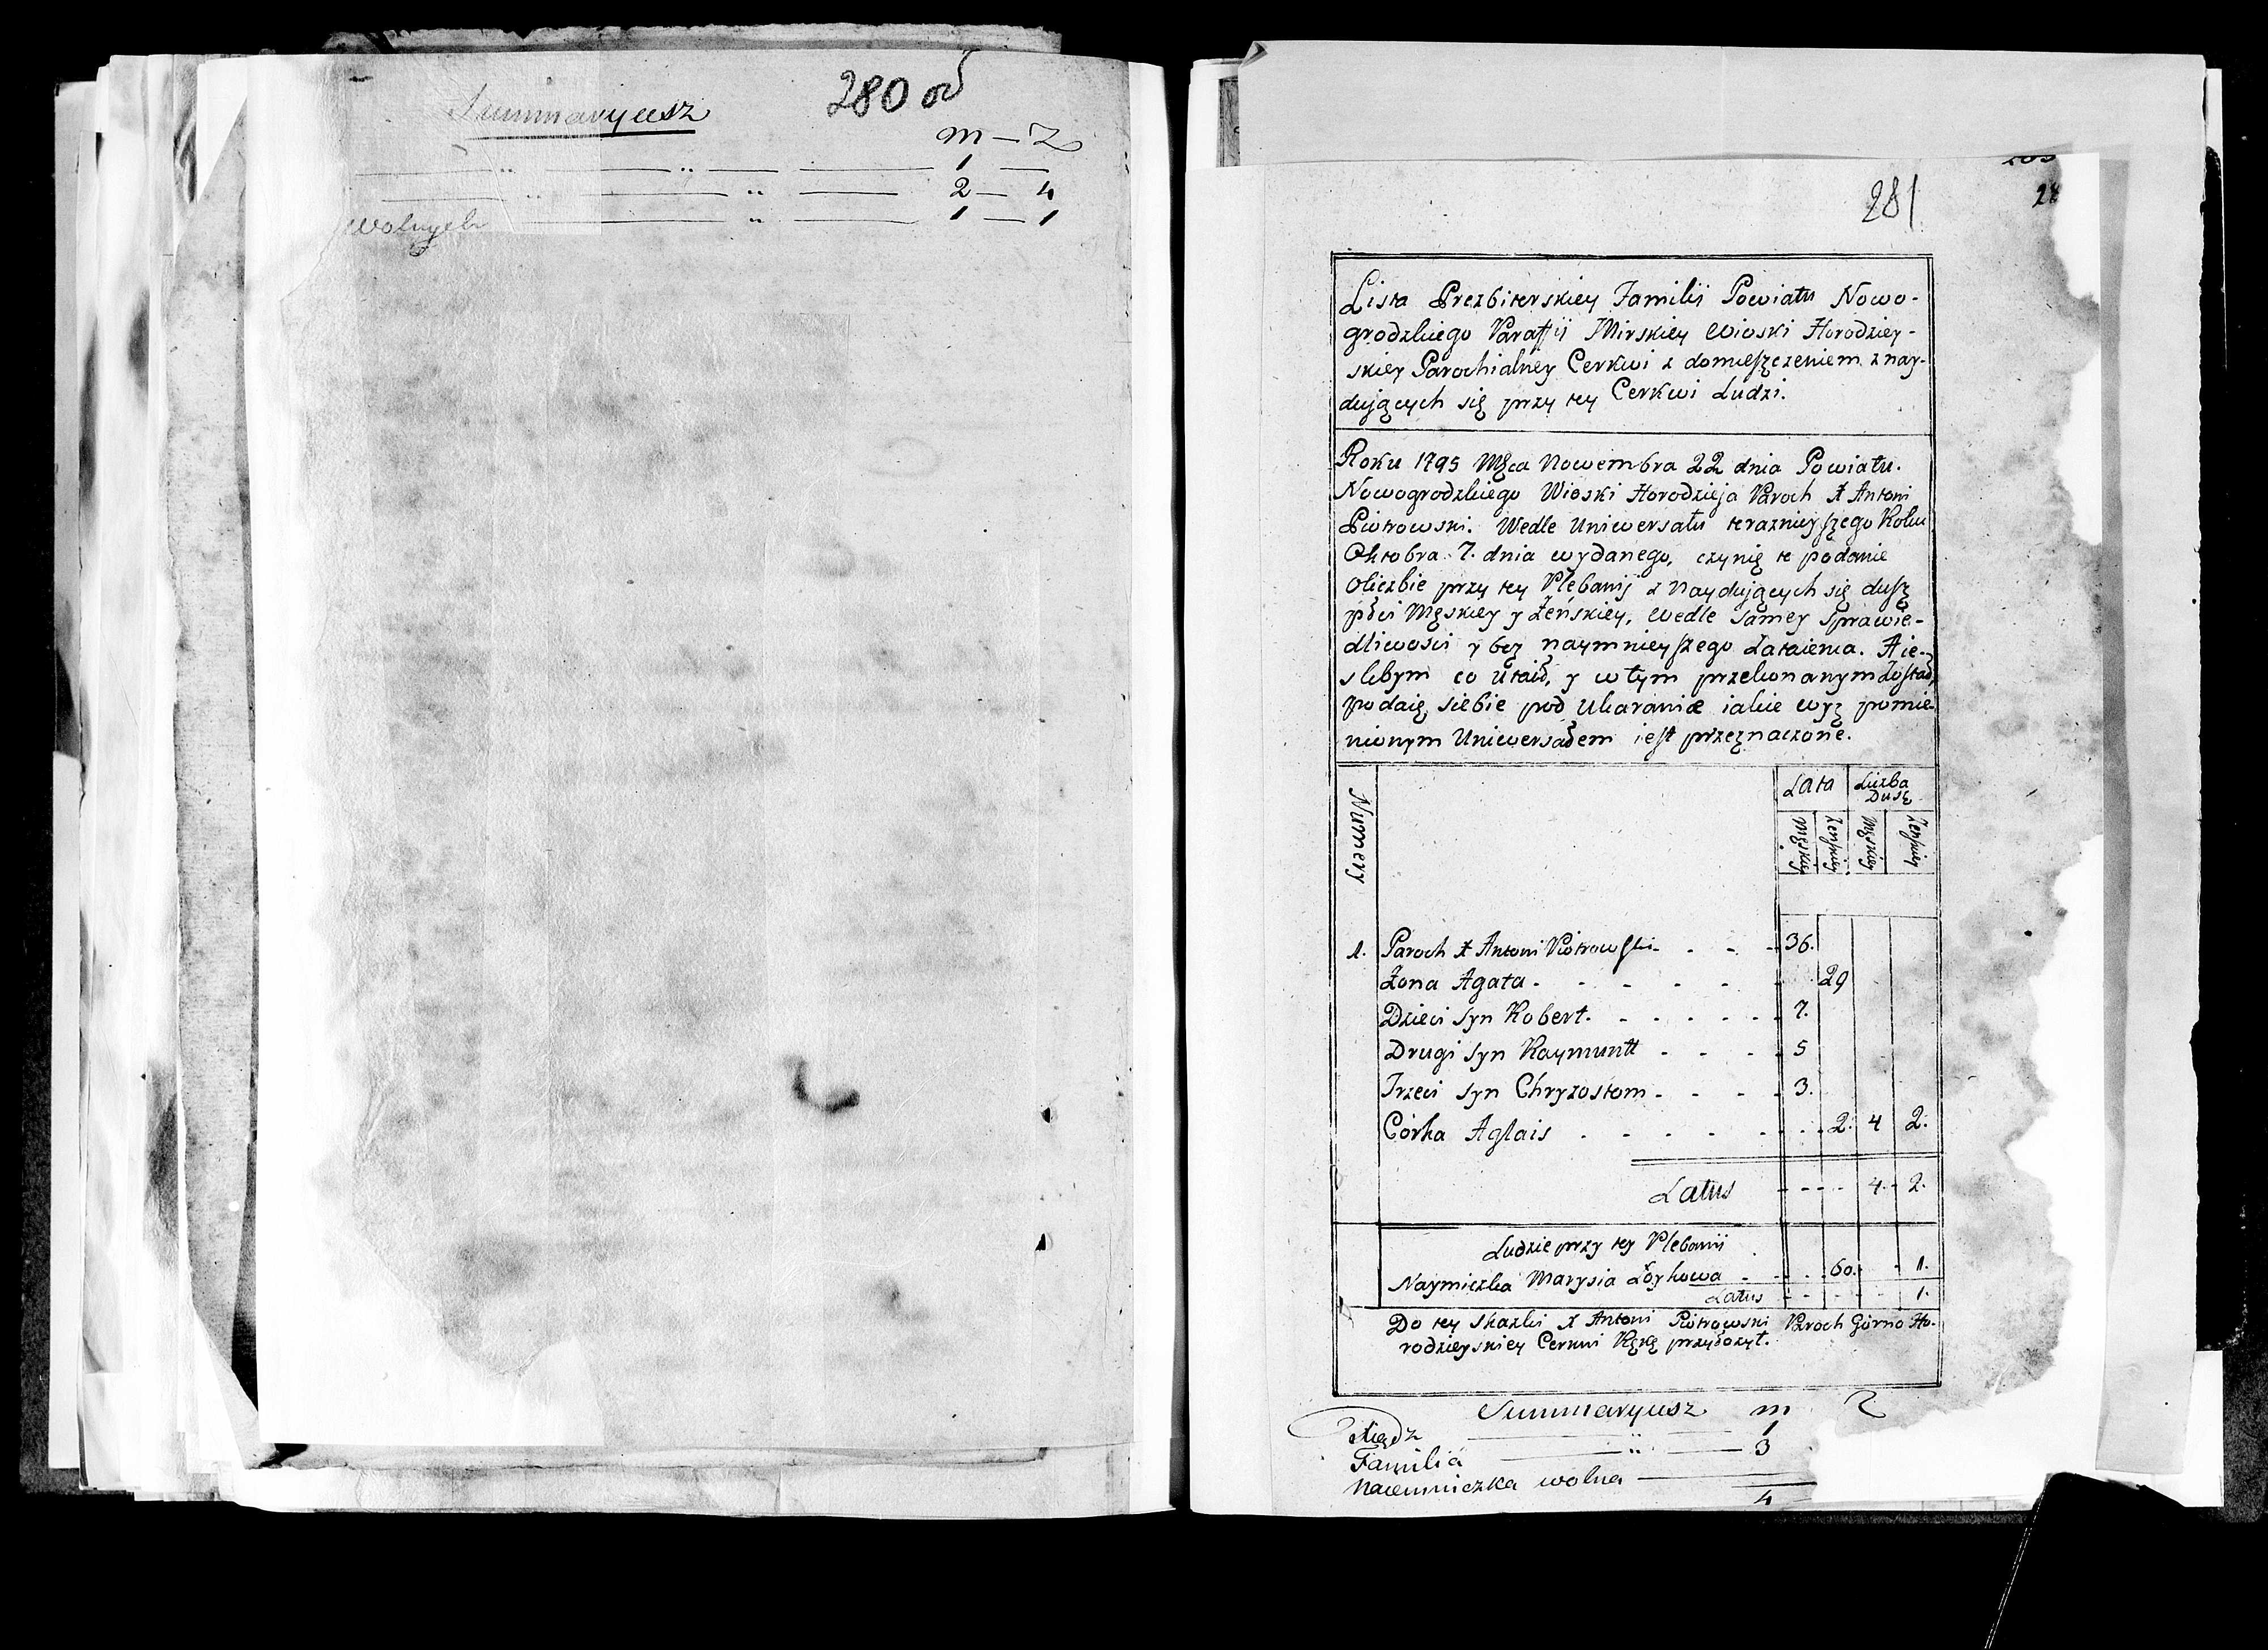 280 об
Summaryusz
m — Z
1 —
2 — 4
wolnych 1 — 1
281
Lista Prezbiterskiey Familii Powiatu Nowo-
grodzkiego Paraffii Mirskiey Wioski Horodziey-
skiey Parochialney Cerkwi z domieszczeniem znay-
dujących się przy tey Cerkwi Ludzi.
Roku 1795 Msca Nowembra 22 dnia Powiatu.
Nowogrodzkiego Wioski Horodzieja Paroch X Antoni
Piotrowski. Wedle Uniwersału teraznieyszego Roku
Oktobra 7. dnia wydanego, czynię te podanie
oliczbie przy tey Plebanij znaydujących się dusz
płci Męskiey y Żeńskiey, wedle samey sprawie-
dliwosci y bez naymnieyszego zataienia. Aie-
slibym co utaił, y w tym przekonanym został,
podaię siebie pod ukaranie iakie wyz pomie-
nionym Uniwersałem iest przeznaczone.
Numery
Lata Liczba Dusz
Męskiey Zenskiey Męskiey Zenskiey
1. Paroch X Antoni Piotrowski - - - - 36.
Zona Agata - - - - - - 29
Dzieci Syn Robert. - - - - - - 7.
Drugi Syn Raymuntt - - - - 5
Trzeci Syn Chryzostom - - - - 3.
Córka Aglais - - - - - - 2. 4 2.
Latus - - - - 4. - 2.
Ludzie przy tey Plebanii
Naymiczka Marysia Łoykowa - - - - 60. - 1.
Latus - - - - - 1.
Do tey Skazki X Antoni Piotrowski Paroch Górno Ho-
rodzieyskiey Cerkwi Rękę przyłożył.
Summaryusz m Z
Xiądz 1
Familia 3
Naiemniczka wolna
4